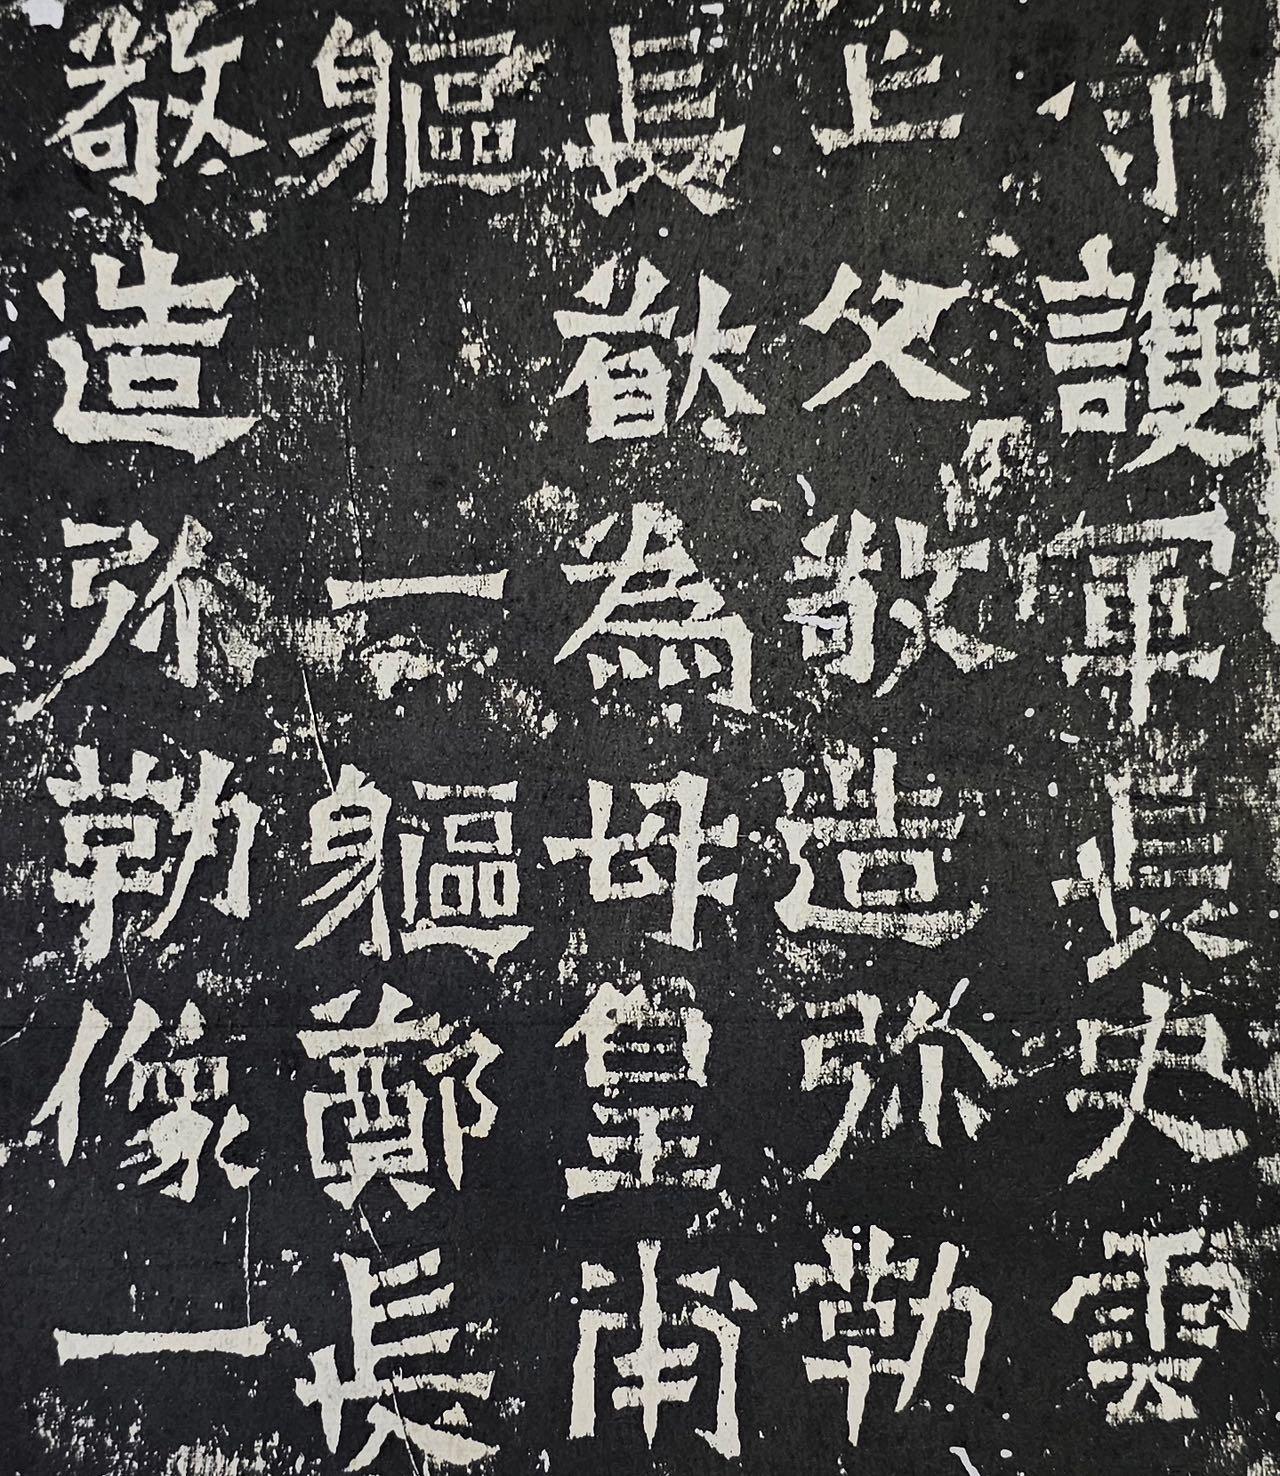 守護軍長史雲
亡父敬造弥勒
長猷為母皇甫
軀 一軀鄭長
敬造弥勒像一